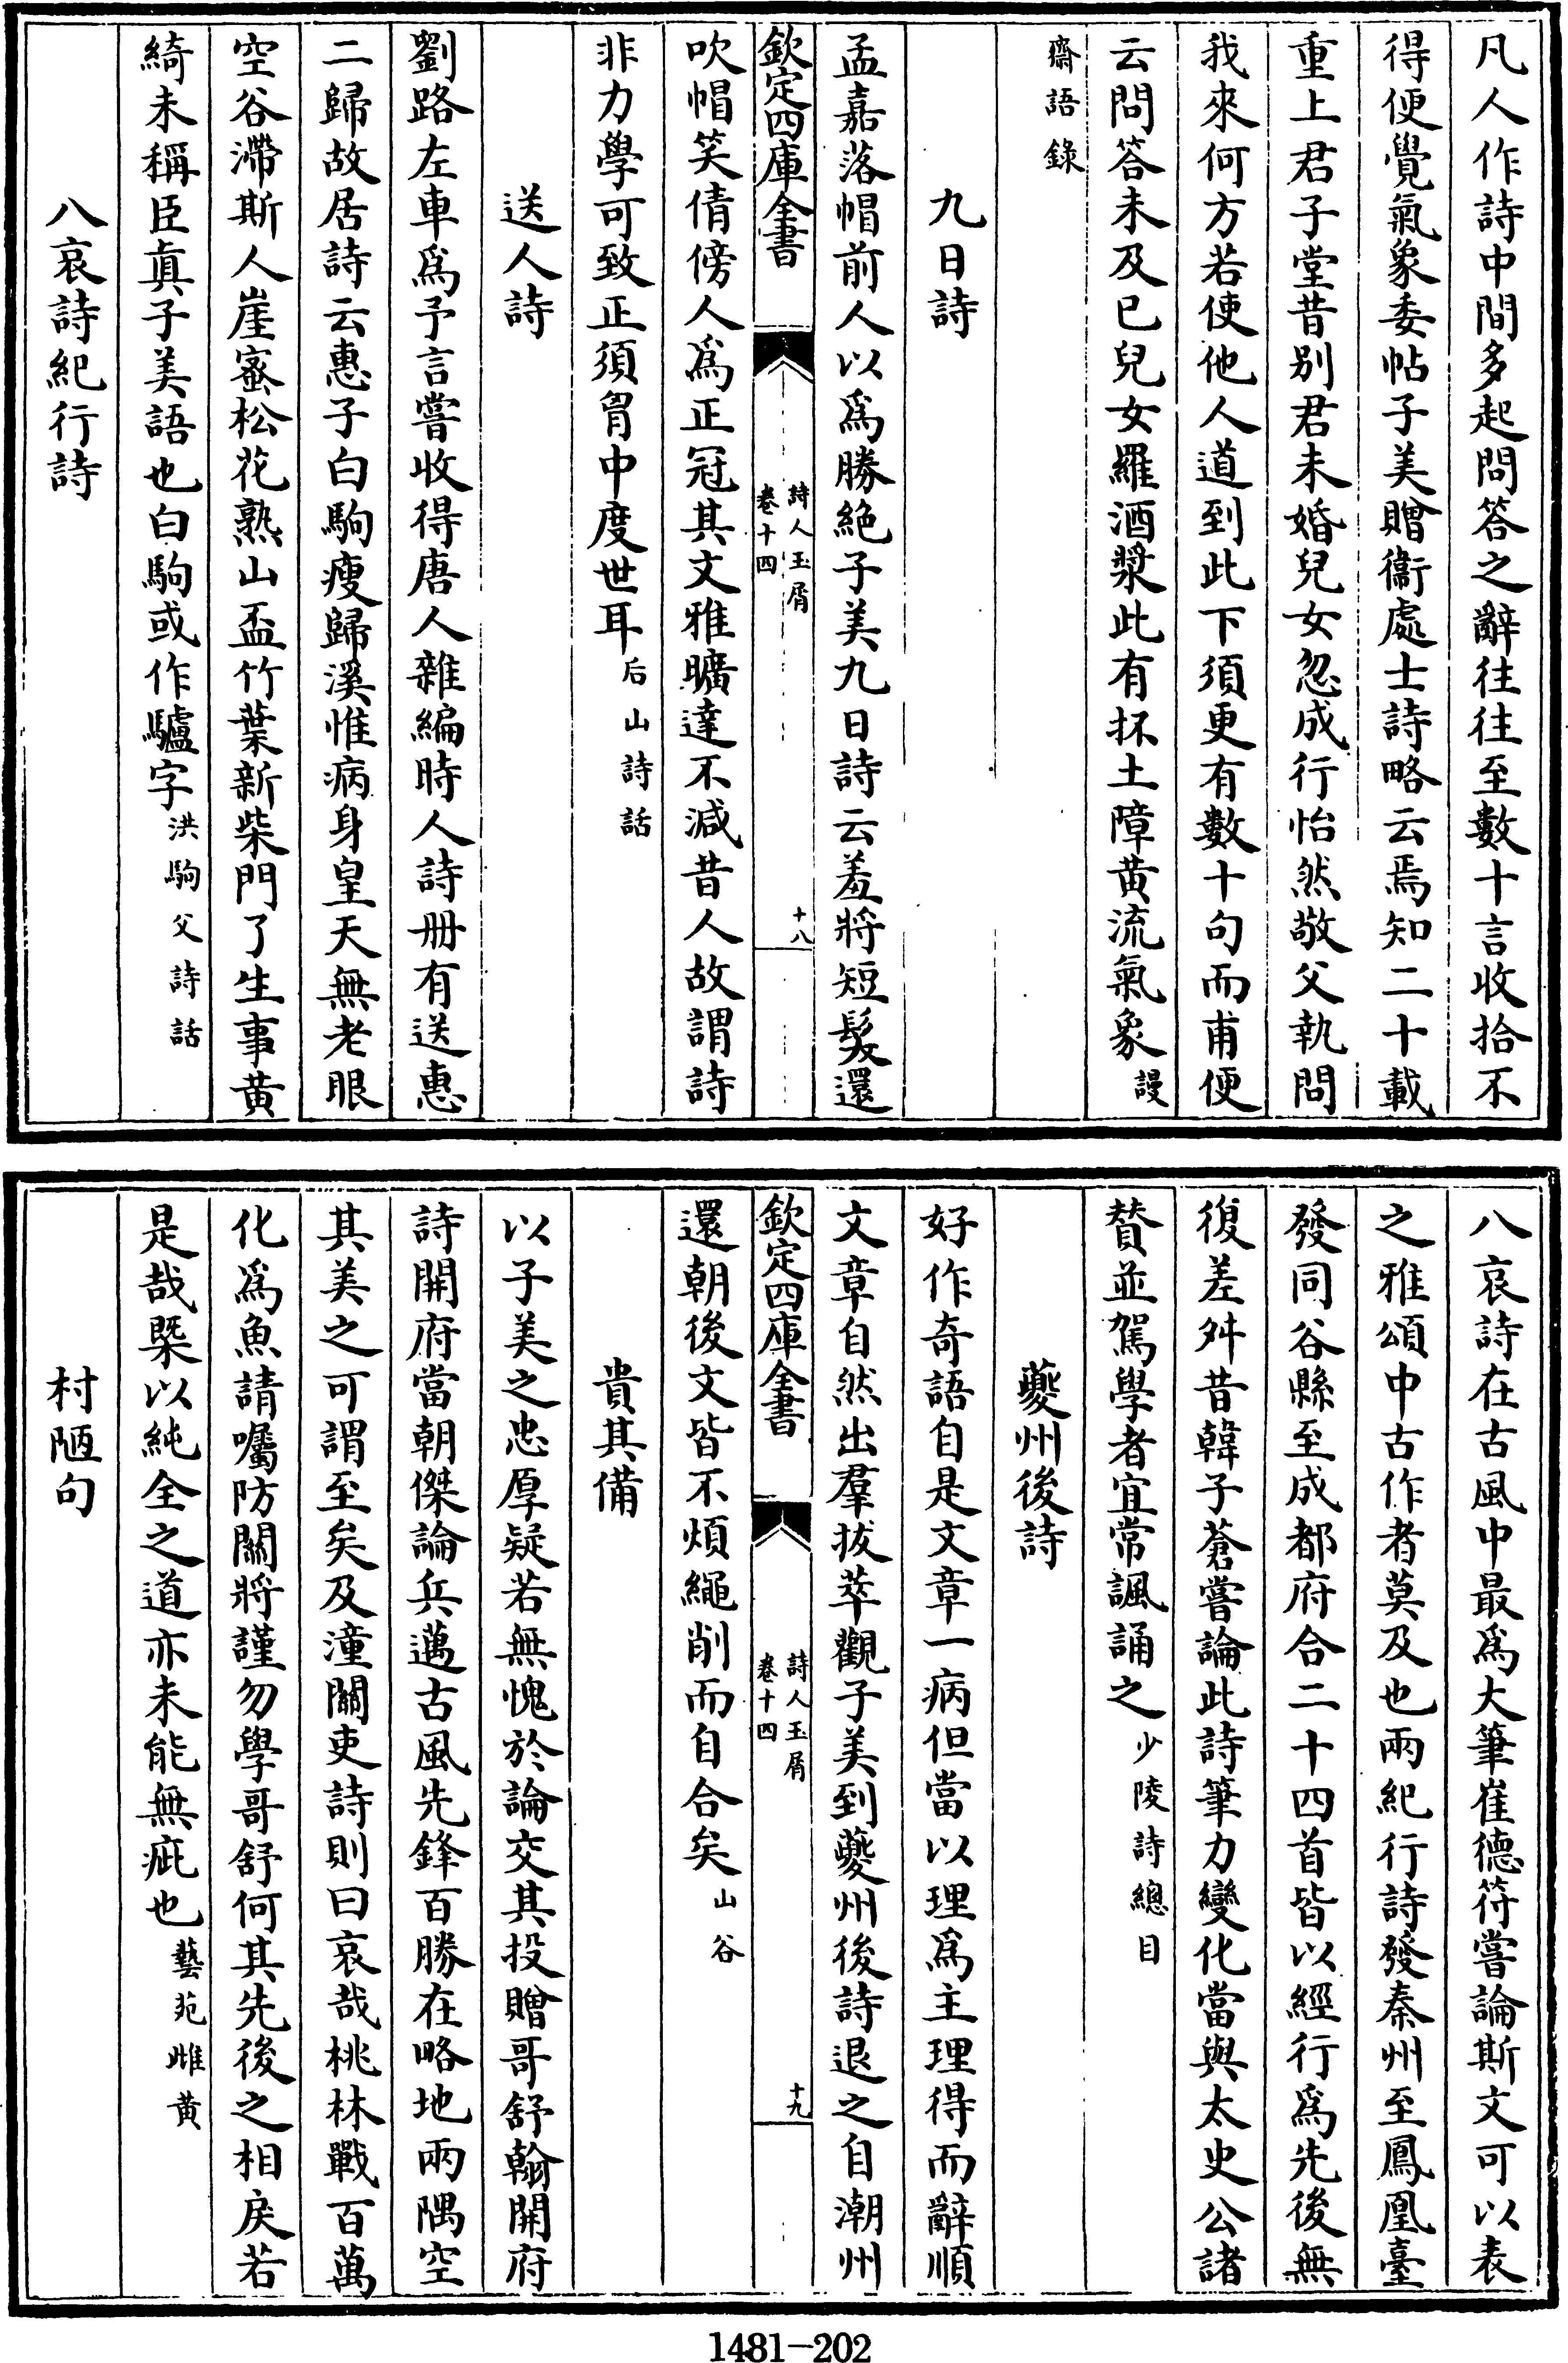 凡人作詩中間多起問答之辭往往至數十言收拾不
得便覺氣象委帖子美贈衞處士詩略云焉知二十載
重上君子堂昔别君未婚兒女忽成行怡然敬父執問
我來何方若使他人道到此下須更有數十句而甫便
云問答未及已兒女羅酒漿此有抔土障黄流氣象謾
齋語錄
九日詩
孟嘉落帽前人以爲勝絶子美九日詩云羞將短髮還
欽定四庫全書
詩人玉屑
卷十四
十八
吹帽笑倩傍人爲正冠其文雅曠達不減昔人故謂詩
非力學可致正須胷中度世耳后山詩話
送人詩
劉路左車爲予言嘗收得唐人雜編時人詩册有送惠
二歸故居詩云惠子白駒瘦歸溪惟病身皇天無老眼
空谷滯斯人崖蜜松花熟山盃竹葉新柴門了生事黄
綺未稱臣真子美語也白駒或作驢字洪駒父詩話
八哀詩紀行詩
八哀詩在古風中最爲大筆崔德符嘗論斯文可以表
之雅頌中古作者莫及也兩紀行詩發秦州至鳳凰臺
發同谷縣至成都府合二十四首皆以經行爲先後無
復差舛昔韓子蒼嘗論此詩筆力變化當與太史公諸
贊並駕學者宜常諷誦之少陵詩總目
夔州後詩
好作奇語自是文章一病但當以理爲主理得而辭順
文章自然出羣拔萃觀子美到夔州後詩退之自潮州
欽定四庫全書
詩人玉屑
卷十四
十九
還朝後文皆不煩繩削而自合矣山谷
貴其備
以子美之忠厚疑若無愧於論交其投贈哥舒翰開府
詩開府當朝傑論兵邁古風先鋒百勝在略地兩隅空
其美之可謂至矣及潼關吏詩則曰哀哉桃林戰百萬
化爲魚請囑防關將謹勿學哥舒何其先後之相戾若
是哉槩以純全之道亦未能無疵也藝苑雌黄
村陋句
1481-202